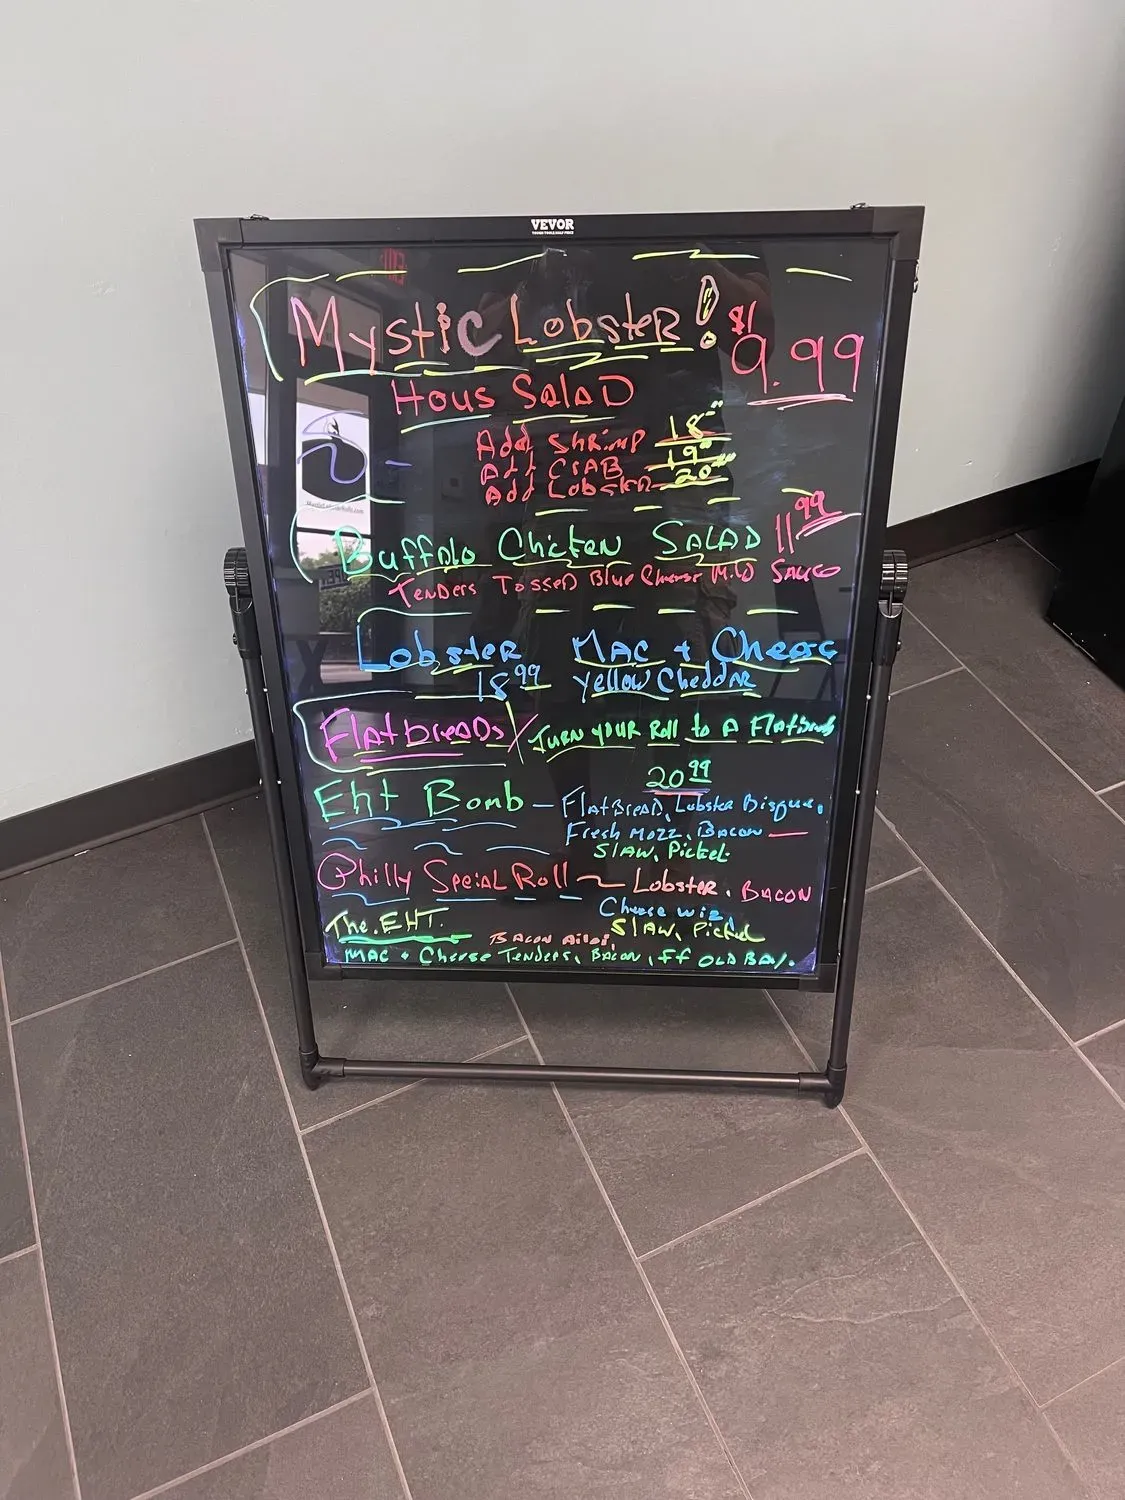 VEVOR
TOUGH TOOLS, HALF PRICE
EXIT
Mystic Lobster!
$1
9.99
Hous Salad
Add Shrimp 18
Add Crab 19
Add Lobster 20
Buffalo Chicken Salad 11 99
Tenders Tossed Blue Cheese Mild Sauce
Lobster Mac + Cheese
18 99 Yellow Cheddar
Flatbreads / Turn your Roll to A Flatbread
20 99
Eht Bomb - Flatbread, Lobster Bisque,
Fresh Mozz, Bacon
Slaw, Pickel
Philly Speial Roll ~ Lobster, Bacon
Cheese wiz
The. EHT. Slaw, Pickel
Bacon Ailoi,
Mac + Cheese Tenders, Bacon, FF OLD BAY.